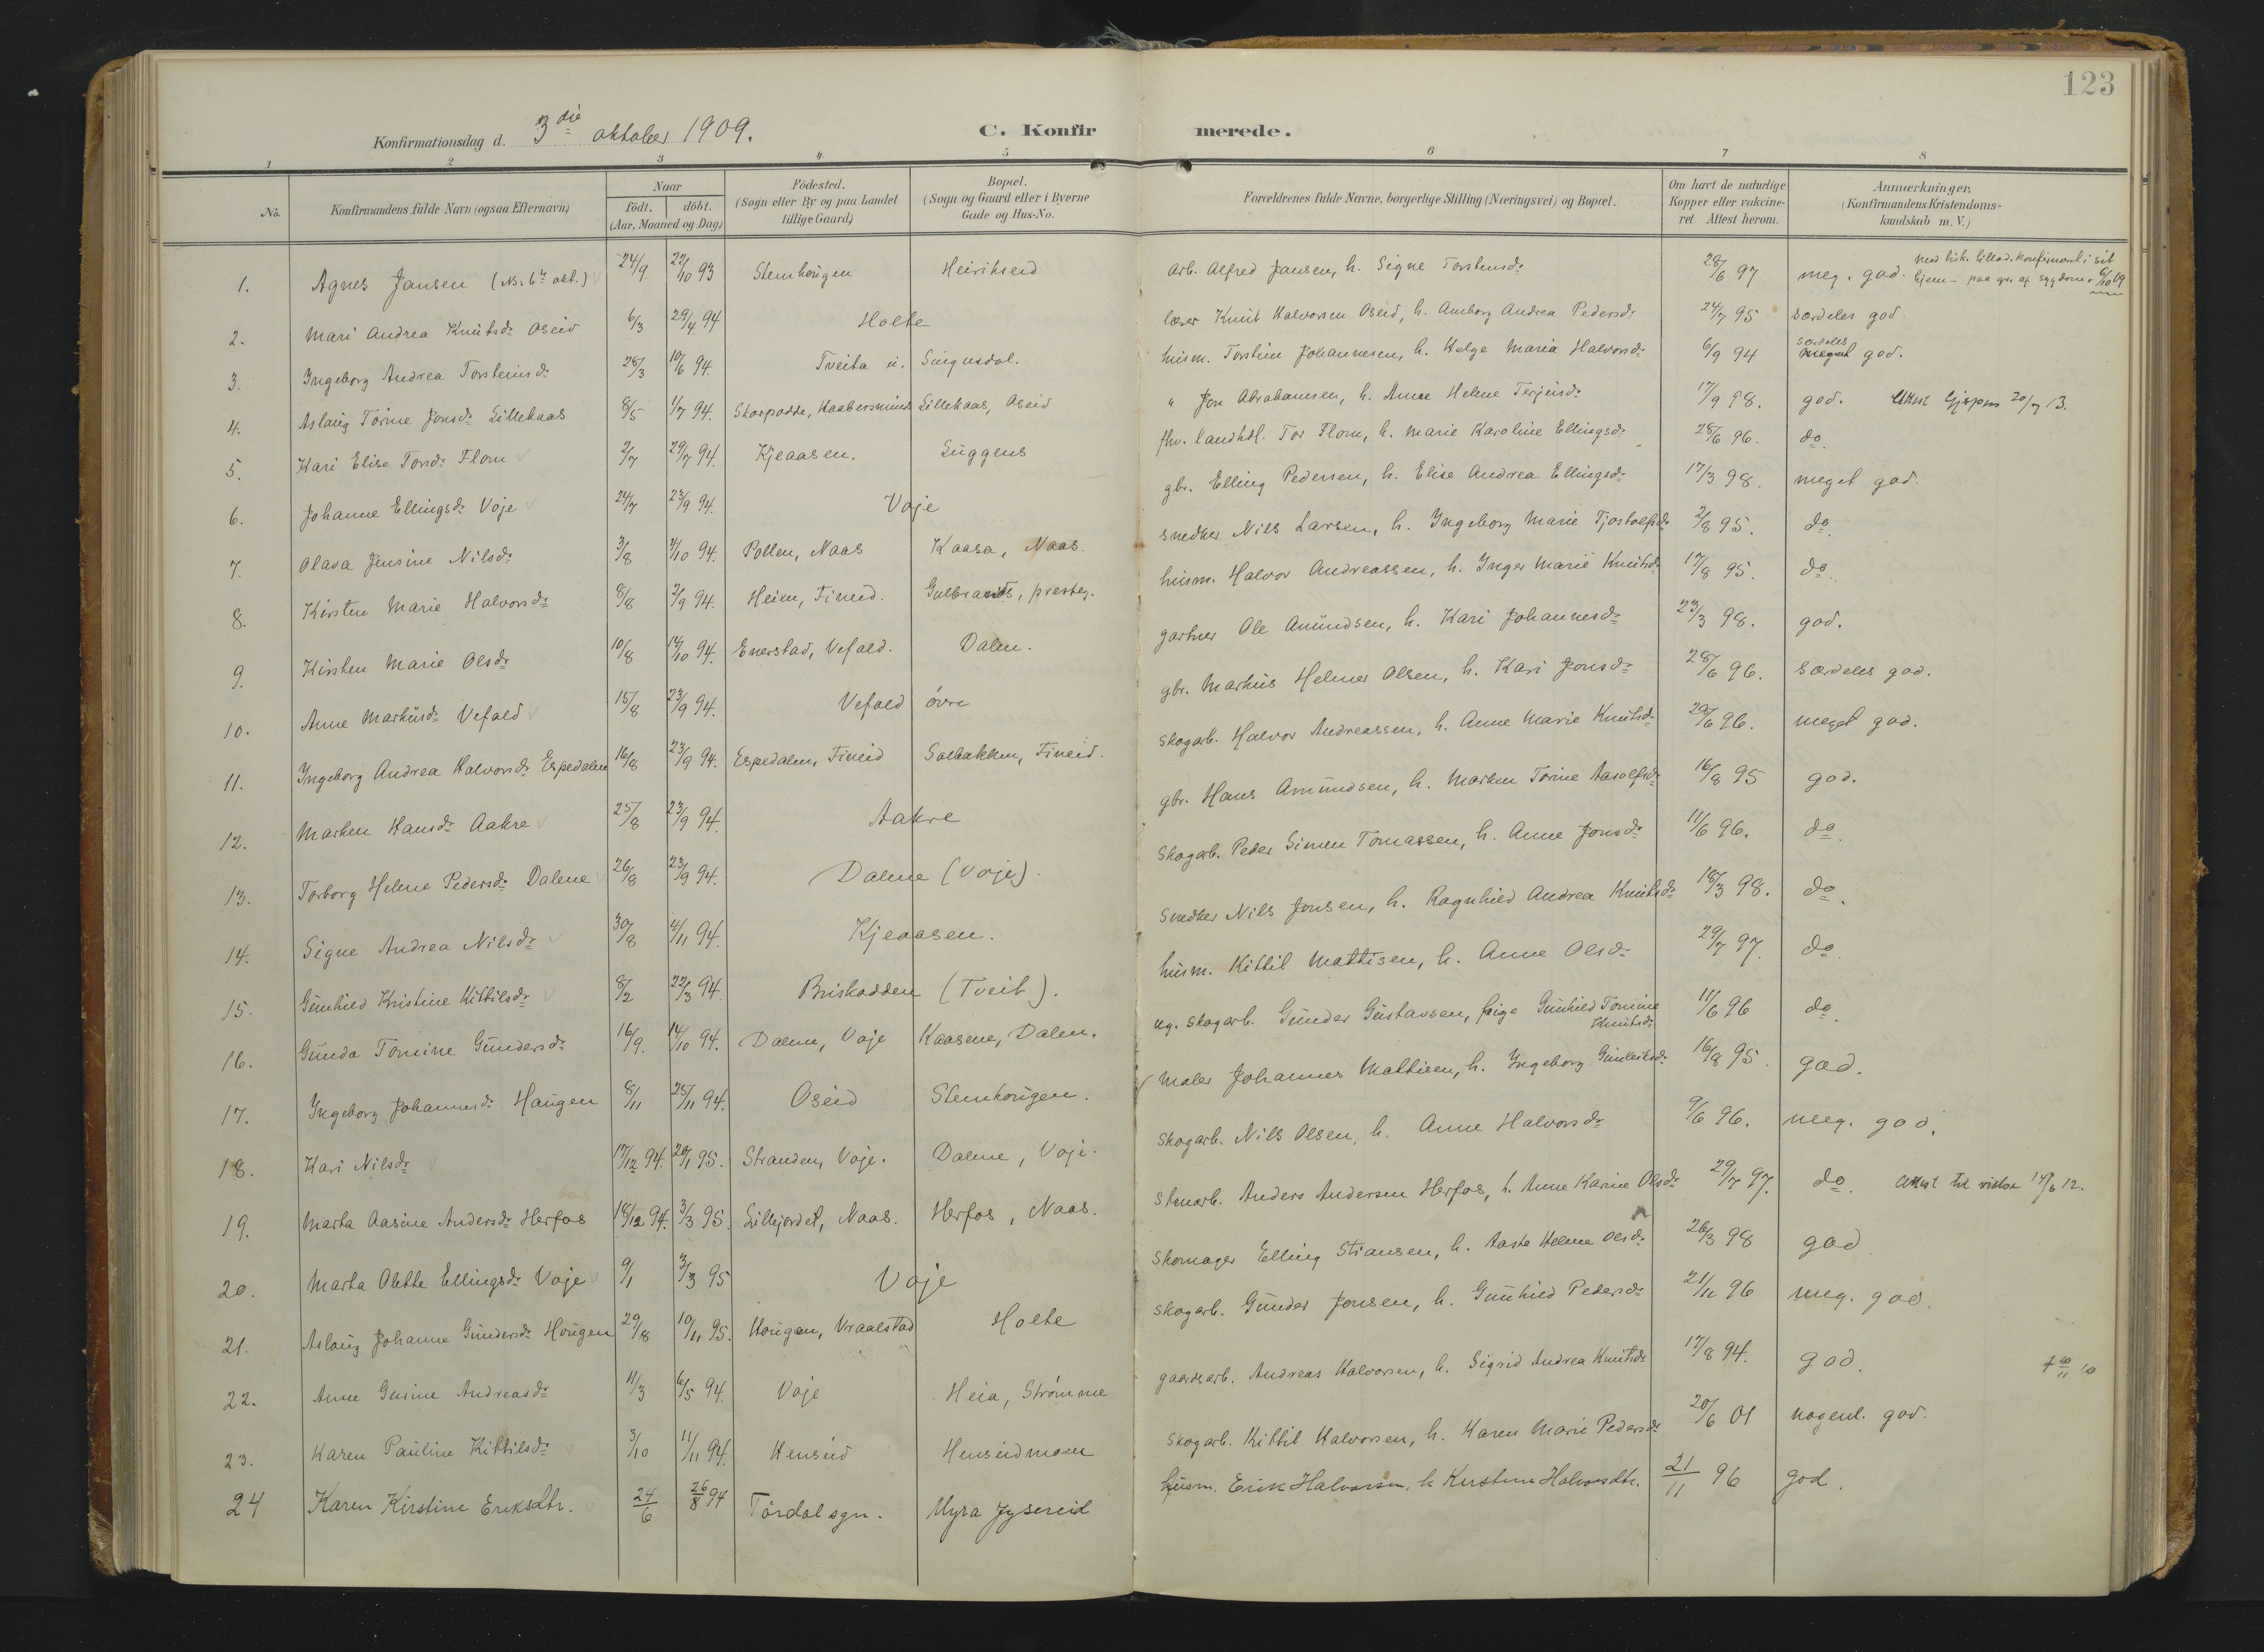 123
Konfirmationsdag d. 3die oktober 1909.
C. Konfir merede.
1 2 3 4 5 6 7 8
No. Konfirmandens fulde Navn (ogsaa Efternavn) Naar født. døbt. (Aar, Maaned og Dag) Fødested. (Sogn eller By og paa Landet tillige Gaard) Bopæl. (Sogn og Gaard eller i Byerne Gade og Hus-No. Forældrenes fulde Navne, borgerlige Stilling (Næringsvei) og Bopæl. Om havt de naturlige Kopper eller vakcineret. Attest herom. Anmærkninger. (Konfirmandens Kristendomskundskab m. V.)
1. Agnes Jansen 24/9 22/10 93 Stemhougen Heirikseid arb. Alfred Jansen, h. Signe Torstensdr 28/6 97 meg. god. med bisk. tillad. konfirmert i sit hjem - paa gr. af sygdom 6/10 09
2. Mari Andrea Knutsdr Oseid 6/3 29/4 94 Holte lærer Knut Halvorsen Oseid, h. Amborg Andrea Pedersdr 24/7 95 særdeles god.
3. Ingeborg Andrea Torsteinsdr 28/3 10/6 94. Tveita u. Sugnsdal. husm. Torstein Johannesen, h. Helge Maria Halvorsdr 6/9 94 særdeles god.
4. Aslaug Torine Jonsdr Lillekaas 8/5 1/7 94. Skarpodde, Lillekaas, Oseid " Jon Abrahamsen, h. Anne Helene Terjeisdr 17/9 98. god. Attest 20/7 13.
5. Kari Elise Torsdr Flom 2/7 29/7 94. Kjeaasen. Suggens fhv. landhdl. Tor Flom, h. Marie Karoline Ellingsdr 28/6 96. do.
6. Johanne Ellingsdr Voje 24/7 23/9 94. Voje gbr. Elling Pedersen, h. Elise Andrea Ellingsdr 17/3 98. meget god.
7. Olava Jensine Nilsdr 3/8 4/10 94. Pollen, Naas Kaasa, Naas. snedker Nils Larsen, h. Ingeborg Marie Tjostolfsdr 2/8 95. do.
8. Kirsten Marie Halvorsdr 8/8 2/9 94. Heien, Fineid. Gulbrands, presteg. husm. Halvor Andreassen, h. Inger Marie Knutsdr 17/8 95. do.
9. Kirsten Marie Olsdr 10/8 14/10 94. Enerstad, Vefald. Dalen. gartner Ole Amundsen, h. Kari Johannesdr 23/3 98. god.
10. Anne Markusdr Vefald 15/8 23/9 94. Vefald øvre gbr. Markus Helmer Olsen, h. Kari Jonsdr 28/6 96. særdeles god.
11. Ingeborg Andrea Halvorsdr Espedalen 16/8 23/9 94. Espedalen, Fineid Solbakken, Fineid. skogarb. Halvor Andreassen, h. Anne Marie Knutsdr 29/6 96. meget god.
12. Marken Hansdr Aakre 25/8 23/9 94. Aakre gbr. Hans Amundsen, h. Marken Torine Aasolfsdr 16/8 95 god.
13. Torborg Helene Pedersdr Dalene 26/8 23/9 94. Dalene (Voje). skogarb. Peder Simen Tomassen, h. Anne Jonsdr 11/6 96. do.
14. Signe Andrea Nilsdr 30/8 4/11 94. Kjeaasen. snedker Nils Jonsen, h. Ragnhild Andrea Knutsdr 18/3 98. do.
15. Gunhild Kristine Kittilsdr 8/2 22/3 94. Briskodden (Tveit). husm. Kittil Mattisen, h. Anne Olsdr 29/7 97. do.
16. Gunda Tomine Gundersdr 16/9. 14/10 94. Dalene, Voje Kaasene, Dalen. ug. skogarb. Gunder Gustavsen, pige Gunhild Tomine Knutsdr 11/6 96 do.
17. Ingeborg Johannesdr Haugen 8/11 25/11 94. Oseid Stemhougen. maler Johannes Mattisen, h. Ingeborg Gunleiksdr 16/8 95. god.
18. Kari Nilsdr 17/12 94. 20/1 95. Stranden, Voje. Dalene, Voje. skogarb. Nils Olsen, h. Anne Halvorsdr 9/6 96. meg. god.
19. Marta Aasine Andersdr Herfos 18/12 94. 3/3 95. Lillejordet, Naas. Herfos, Naas. stenarb. Anders Andersen Herfos, h. Anne Karine Olsdr 29/7 97. do. Attest til vielse 17/6 12.
20. Marta Olette Ellingsdr Voje 9/1 3/3 95 Voje skomager Elling Stiansen, h. Aaste Helene Olsdr 26/3 98 god
21. Aslaug Johanne Gundersdr Hougen 29/8 10/11 95. Hougen, Vraalstad Holte skogarb. Gunder Jonsen, h. Gunhild Pedersdr 21/11 96 meg. god.
22. Anne Gurine Andreasdr 11/3 6/5 94. Voje Heia, Strømme gaardsarb. Andreas Halvorsen, h. Sigrid Andrea Knutsdr 17/8 94. god.
23. Karen Pauline Kittilsdr 3/10 11/11 94. Henseid Henseidmoen skogarb. Kittil Halvorsen, h. Karen Marie Pedersdr 20/6 01 nogenl. god.
24 Karen Kirstine Eriksdtr. 24/6 26/8 94 Tørdal sgn. Myra Jysereid husm. Erik Halvorsen, h. Kirstine Halvorsdtr. 21/11 96 god.